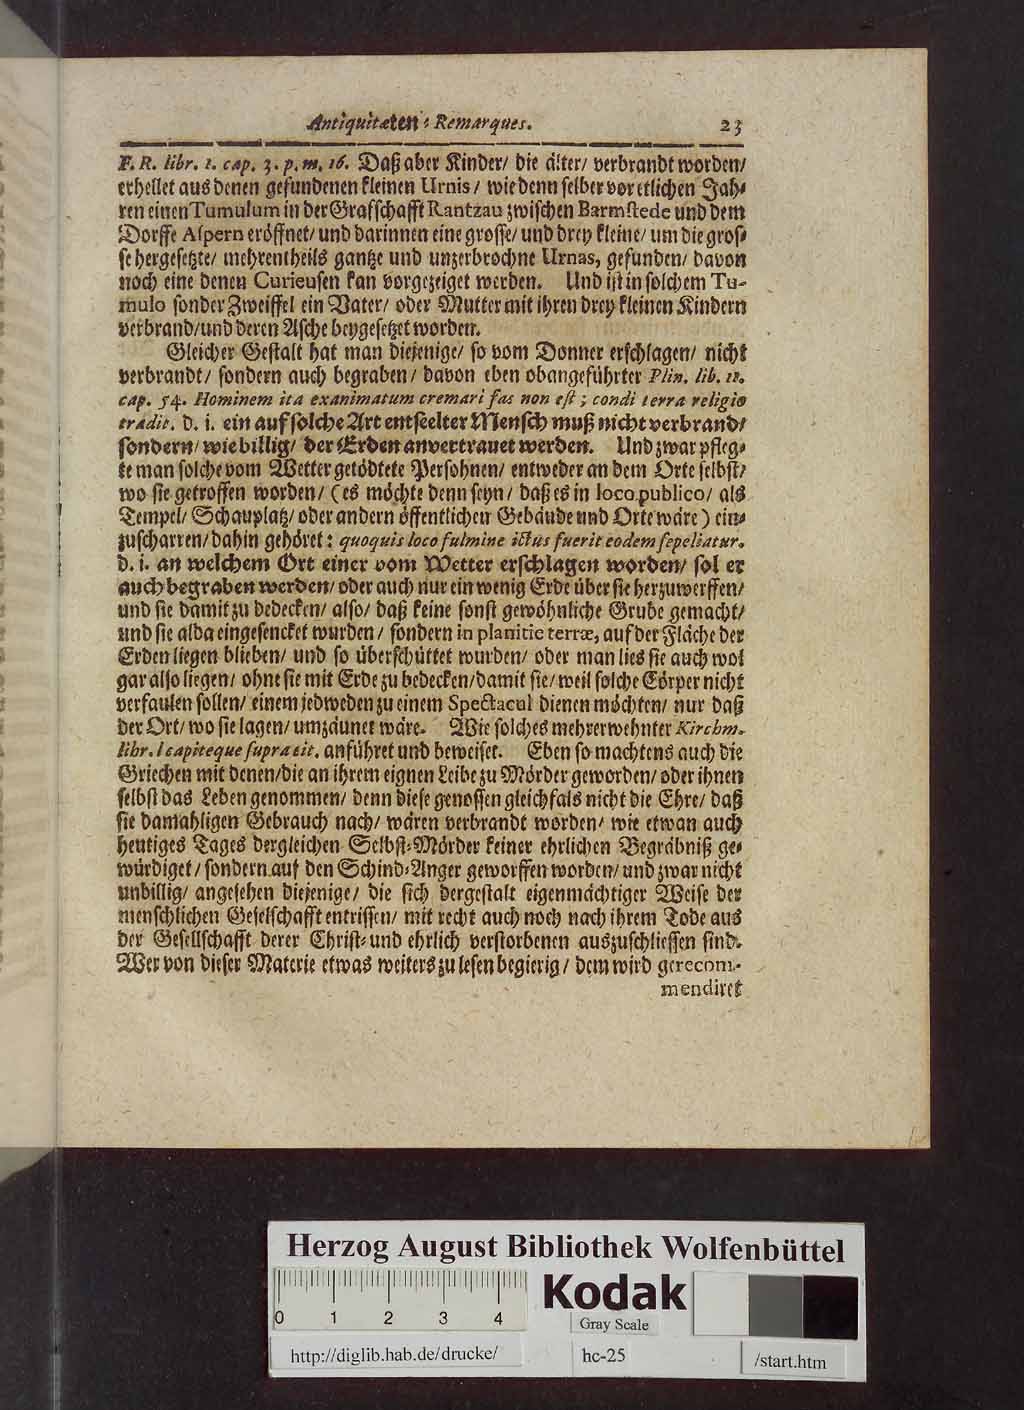 Antiquitæten-Remarques. 23
F. R. libr. 1. cap. 3. p. m. 16. Daß aber Kinder/ die älter/ verbrandt worden/
erhellet aus denen gefundenen kleinen Urnis/ wie denn selber vor etlichen Jah-
ren einen Tumulum in der Grafschafft Rantzau zwischen Barmstede und dem
Dorffe Aspern eröffnet/ und darinnen eine grosse/ und drey kleine/ um die gros-
se hergesetzte/ mehrentheils gantze und unzerbrochne Urnas, gefunden/ davon
noch eine denen Curieusen kan vorgezeiget werden. Und ist in solchem Tu-
mulo sonder Zweiffel ein Vater/ oder Mutter mit ihren drey kleinen Kindern
verbrand/ und deren Asche beygesetzet worden.
Gleicher Gestalt hat man diejenige/ so vom Donner erschlagen/ nicht
verbrandt/ sondern auch begraben/ davon eben obangeführter Plin. lib. 11.
cap. 54. Hominem ita exanimatum cremari fas non est; condi terra religio
tradit. d. i. ein auf solche Art entseelter Mensch muß nicht verbrand/
sondern/ wie billig/ der Erden anvertrauet werden. Und zwar pfleg-
te man solche vom Wetter getödtete Persohnen/ entweder an dem Orte selbst/
wo sie getroffen worden/ (es möchte denn seyn/ daß es in loco publico/ als
Tempel/ Schauplatz/ oder andern öffentlichen Gebäude und Orte wäre) ein-
zuscharren/ dahin gehöret: quoquis loco fulmine ictus fuerit eodem sepeliatur.
d. i. an welchem Ort einer vom Wetter erschlagen worden/ sol er
auch begraben werden/ oder auch nur ein wenig Erde über sie herzuwerffen/
und sie damit zu bedecken/ also/ daß keine sonst gewöhnliche Grube gemacht/
und sie alda eingesencket wurden/ sondern in planitie terræ, auf der Fläche der
Erden liegen blieben/ und so überschüttet wurden/ oder man lies sie auch wol
gar also liegen/ ohne sie mit Erde zu bedecken/ damit sie/ weil solche Cörper nicht
verfaulen sollen/ einem jedweden zu einem Spectacul dienen möchten/ nur daß
der Ort/ wo sie lagen/ umzäunet wäre. Wie solches mehrerwehnter Kirchm.
libr. 1 capiteque supra cit. anführet und beweiset. Eben so machtens auch die
Griechen mit denen/ die an ihrem eignen Leibe zu Mörder geworden/ oder ihnen
selbst das Leben genommen/ denn diese genossen gleichfals nicht die Ehre/ daß
sie damahligen Gebrauch nach/ wären verbrandt worden/ wie etwan auch
heutiges Tages dergleichen Selbst-Mörder keiner ehrlichen Begräbniß ge-
würdiget/ sondern auf den Schind-Anger geworffen worden/ und zwar nicht
unbillig/ angesehen diejenige/ die sich dergestalt eigenmächtiger Weise der
menschlichen Geselschafft entrissen/ mit recht auch noch nach ihrem Tode aus
der Gesellschafft derer Christ- und ehrlich verstorbenen auszuschliessen sind.
Wer von dieser Materie etwas weiters zu lesen begierig/ dem wird gerecom-
mendiret
Herzog August Bibliothek Wolfenbüttel
0 1 2 3 4
Kodak
Gray Scale
http://diglib.hab.de/drucke/ hc-25 /start.htm